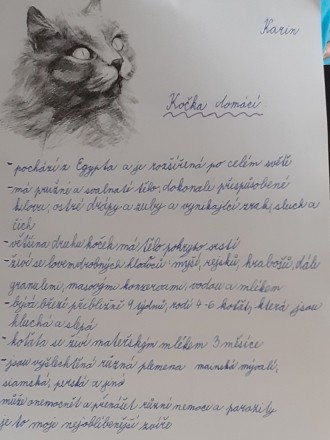 Karin
Kočka domácí
- pochází z Egypta a je rozšířená po celém světě
- má pružné a svalnaté tělo, dokonale přispůsobené
lovu, ostré drápy a zuby a vynikající zrak, sluch a
čich
- většina druhu koček má tělo pokryto srstí
- živí se lovem drobných hlodavců: myší, rejsků, hrabošů, dále
granulemi, masovými konzervami, vodou a mlékem
- bývá březí přebližně 9 týdnů, rodí 4-6 koťat, která jsou
hluchá a slepá
- koťata se živí mateřským mlékem 3 měsíce
- jsou vyšlechtěná různá plemena mainská mývalí,
siamská, perská a jiná
může onemocnět a přenášet různé nemoce a parazity
je to moje nejoblíbenější zvíře